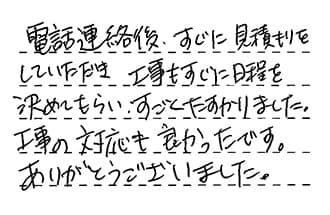 電話連絡後、すぐに見積もりを
していただき 工事もすぐに日程を
決めてもらい、すごくたすかりました。
工事の対応も良かったです。
ありがとうございました。